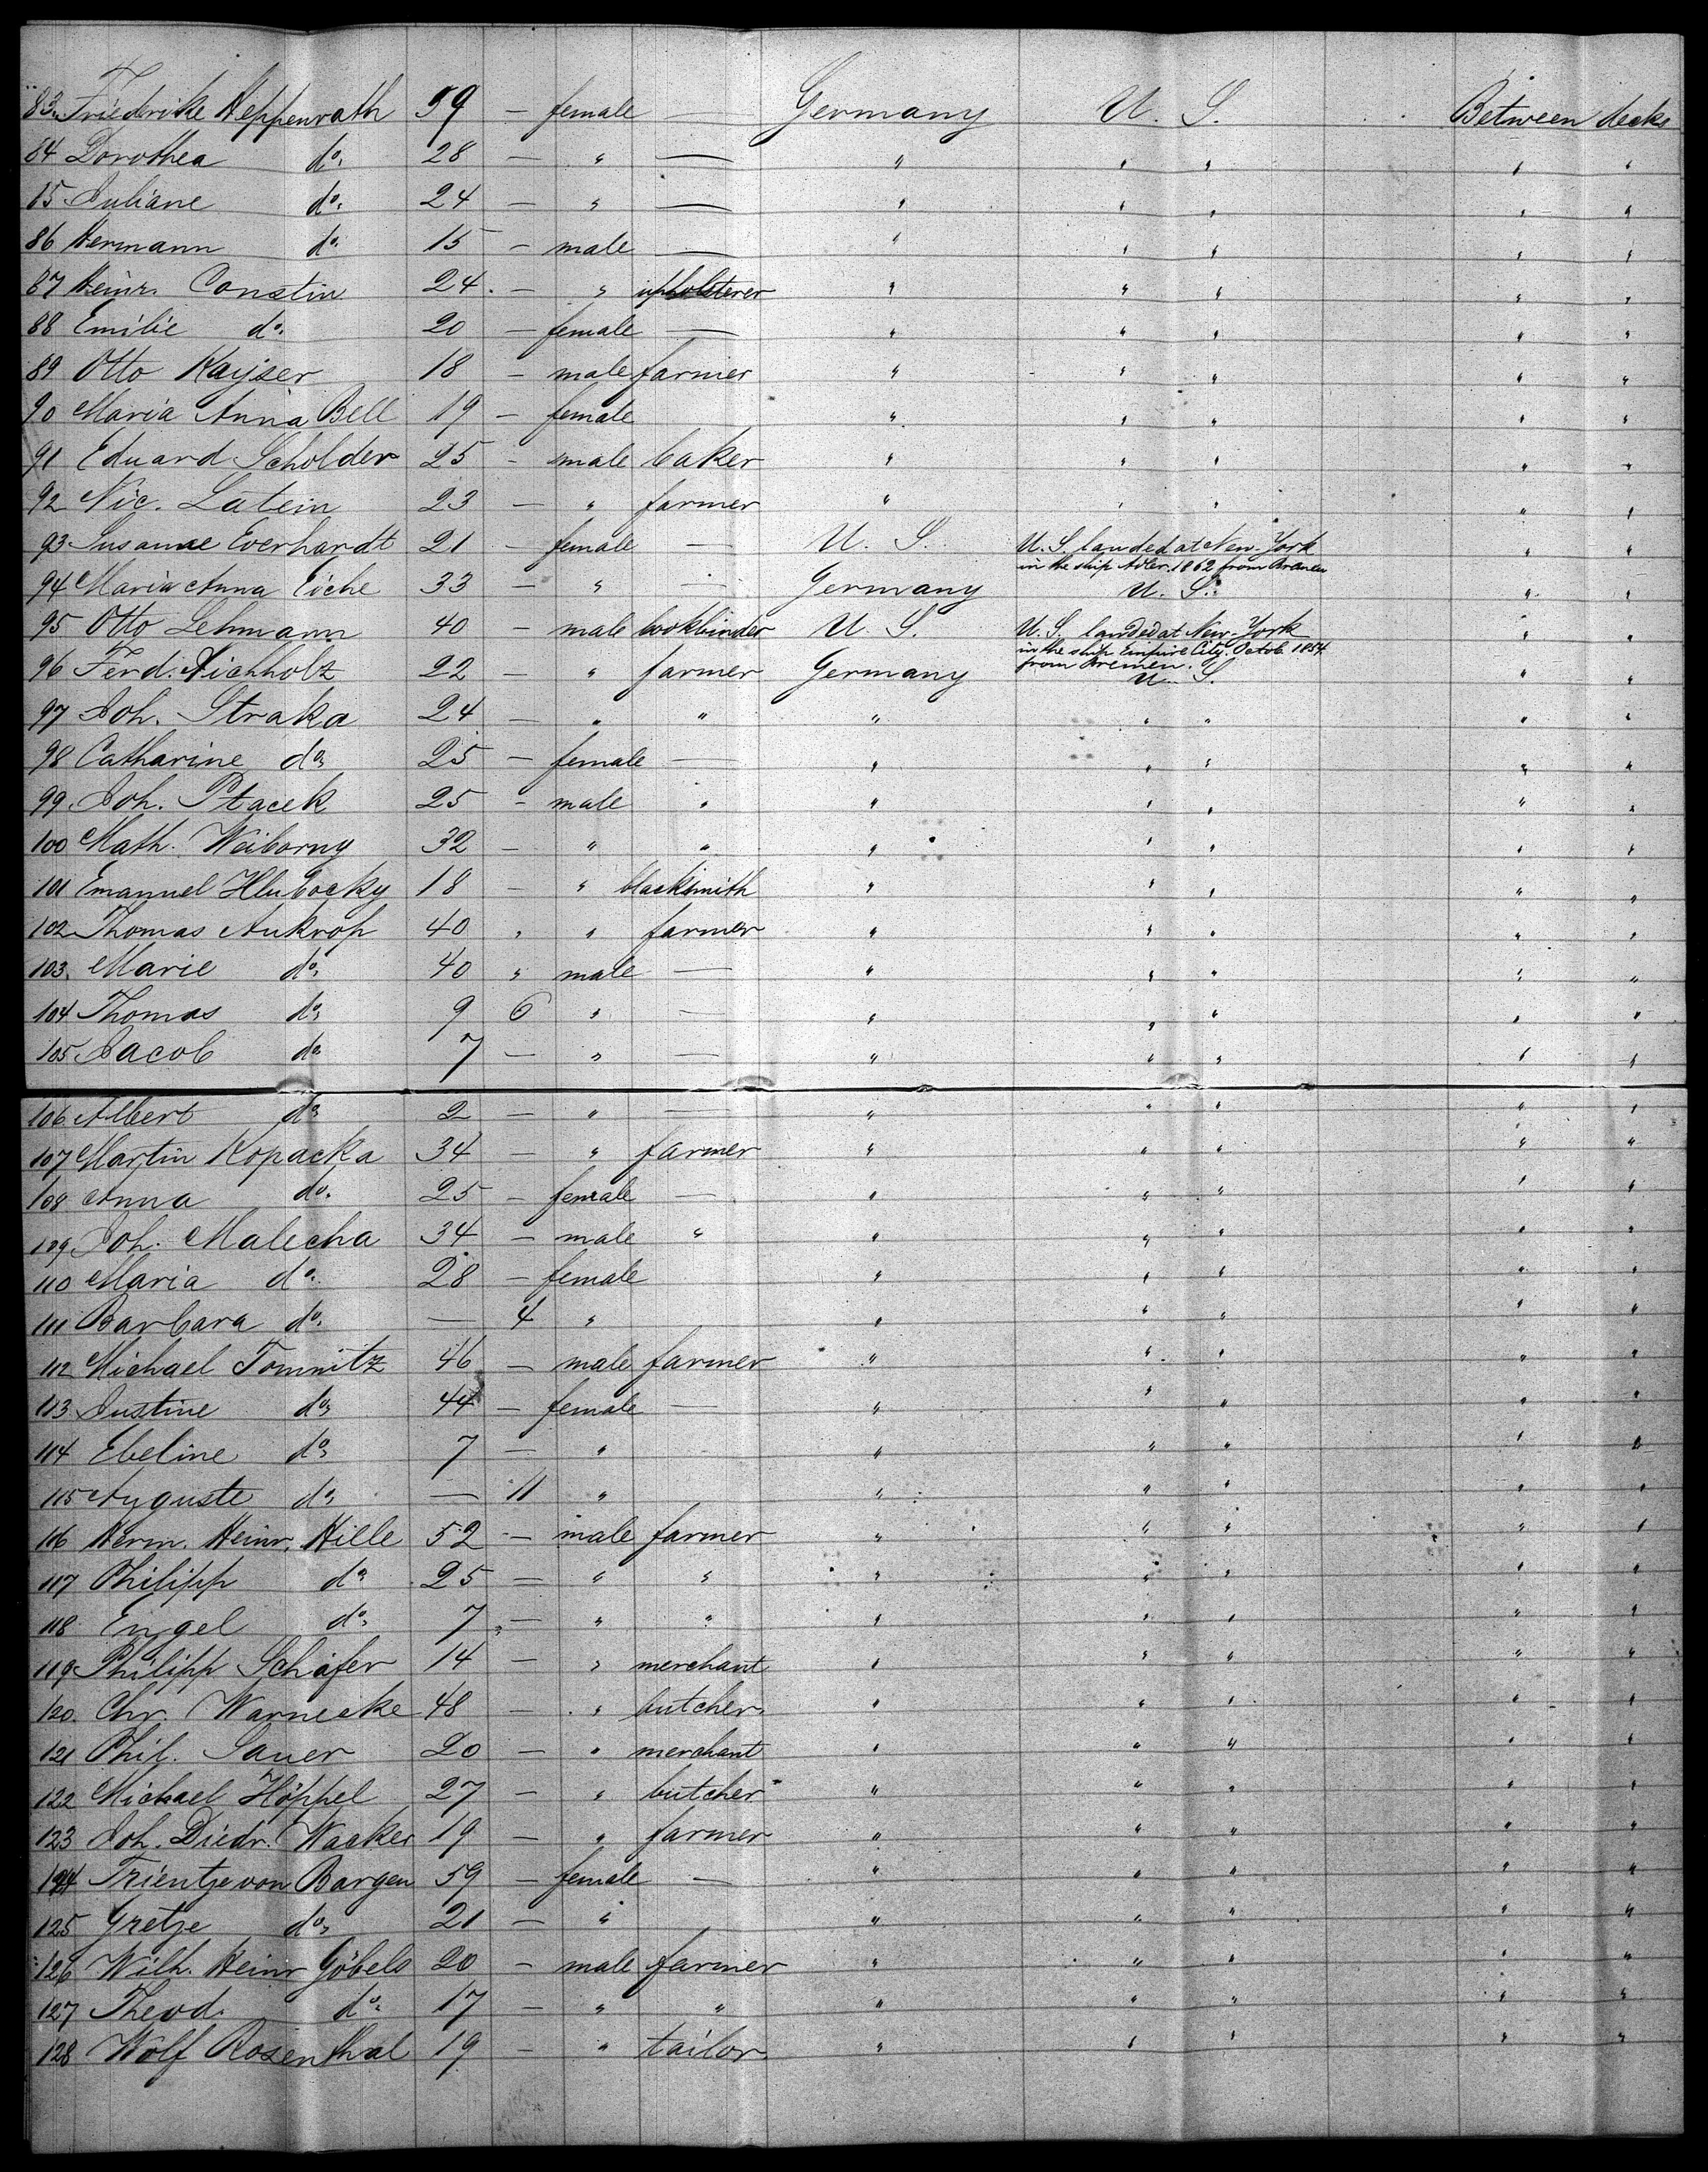 83 Friederike Heppenrath 59 — female — Germany U. S. Between decks
84 Dorothea do 28 — " — " " " " "
85 Juliane do 24 — " — " " " " "
86 Hermann do 15 — male — " " " " "
87 Heinr. Constin 24 — " upholsterer " " " " "
88 Emilie do 20 — female — " " " " "
89 Otto Kayser 18 — male farmer " " " " "
90 Maria Anna Bell 19 — female " " " " "
91 Eduard Scholder 25 — male baker " " " " "
92 Nic. Latein 23 — " farmer " " " " "
93 Susanne Everhardt 21 — female — U. S. U. S. landed at New-York " "
in the ship Adler. 1862 from Bremen
94 Maria Anna Eiche 33 — " — Germany U. S. " "
95 Otto Lehmann 40 — male bookbinder U. S. U. S. landed at New-York " "
in the ship Empire City. Octob. 1854
from Bremen.
96 Ferd. Aichholz 22 — " farmer Germany U. S. " "
97 Joh. Straka 24 — " " " " " " "
98 Catharine do 25 — female — " " " " "
99 Joh. Ptacek 25 — male " " " " " "
100 Math. Weiborny 32 — " " " " " " "
101 Emanuel Hlubocky 18 — " blacksmith " " " " "
102 Thomas Aukrop 40 " " farmer " " " " "
103 Marie do 40 " male — " " " " "
104 Thomas do 9 6 " — " " " " "
105 Jacob do 7 — " — " " " " "
106 Albert do 2 — " — " " " " "
107 Martin Kopacka 34 — " farmer " " " " "
108 Anna do 25 — female — " " " " "
109 Joh. Malecha 34 — male " " " " " "
110 Maria do 28 — female " " " " "
111 Barbara do — 4 " " " " " "
112 Michael Tomnitz 46 — male farmer " " " " "
113 Justine do 44 — female — " " " " "
114 Ebeline do 7 — " " " " " "
115 Auguste do — 11 " " " " " "
116 Herm. Heinr. Hille 52 — male farmer " " " " "
117 Philipp do 25 — " " " " " " "
118 Engel do 7 — " " " " " " "
119 Philipp Schäfer 14 — " merchant " " " " "
120 Chr. Warnecke 48 — " butcher " " " " "
121 Phil. Sauer 20 — " merchant " " " " "
122 Michael Höppel 27 — " butcher " " " " "
123 Joh. Diedr. Waaker 19 — " farmer " " " " "
124 Trientje von Bargen 59 — female — " " " " "
125 Gretje do 21 — " " " " " "
126 Wilh. Heinr Göbels 20 — male farmer " " " " "
127 Theod. do 17 — " " " " " " "
128 Wolf Rosenthal 19 — " tailor " " " " "